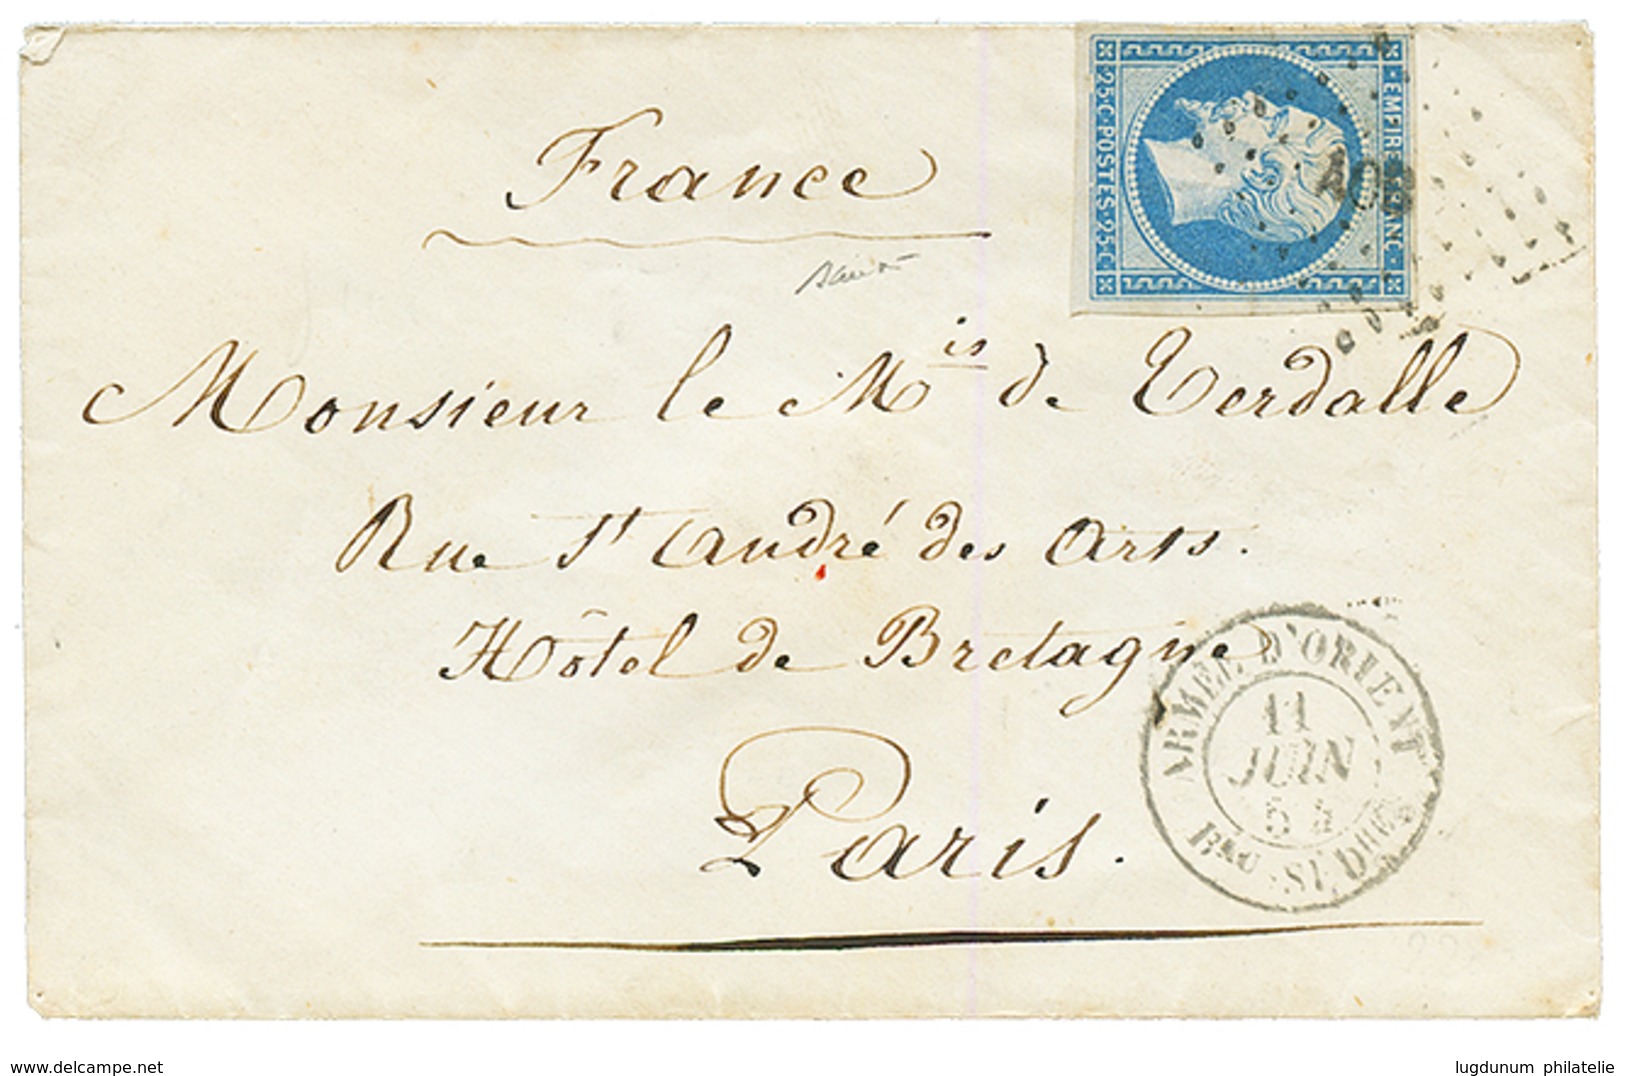 France
EMPIRE FRANC
25 · C · POSTES · 25 · C
AOB
Monsieur le M^is de Verdalle
Rue St André des Arts.
Hôtel de Bretagne
Paris.
ARMÉE D'ORIENT
11
JUIN
54
Bau
delcampe.net
lugdunum philatelie